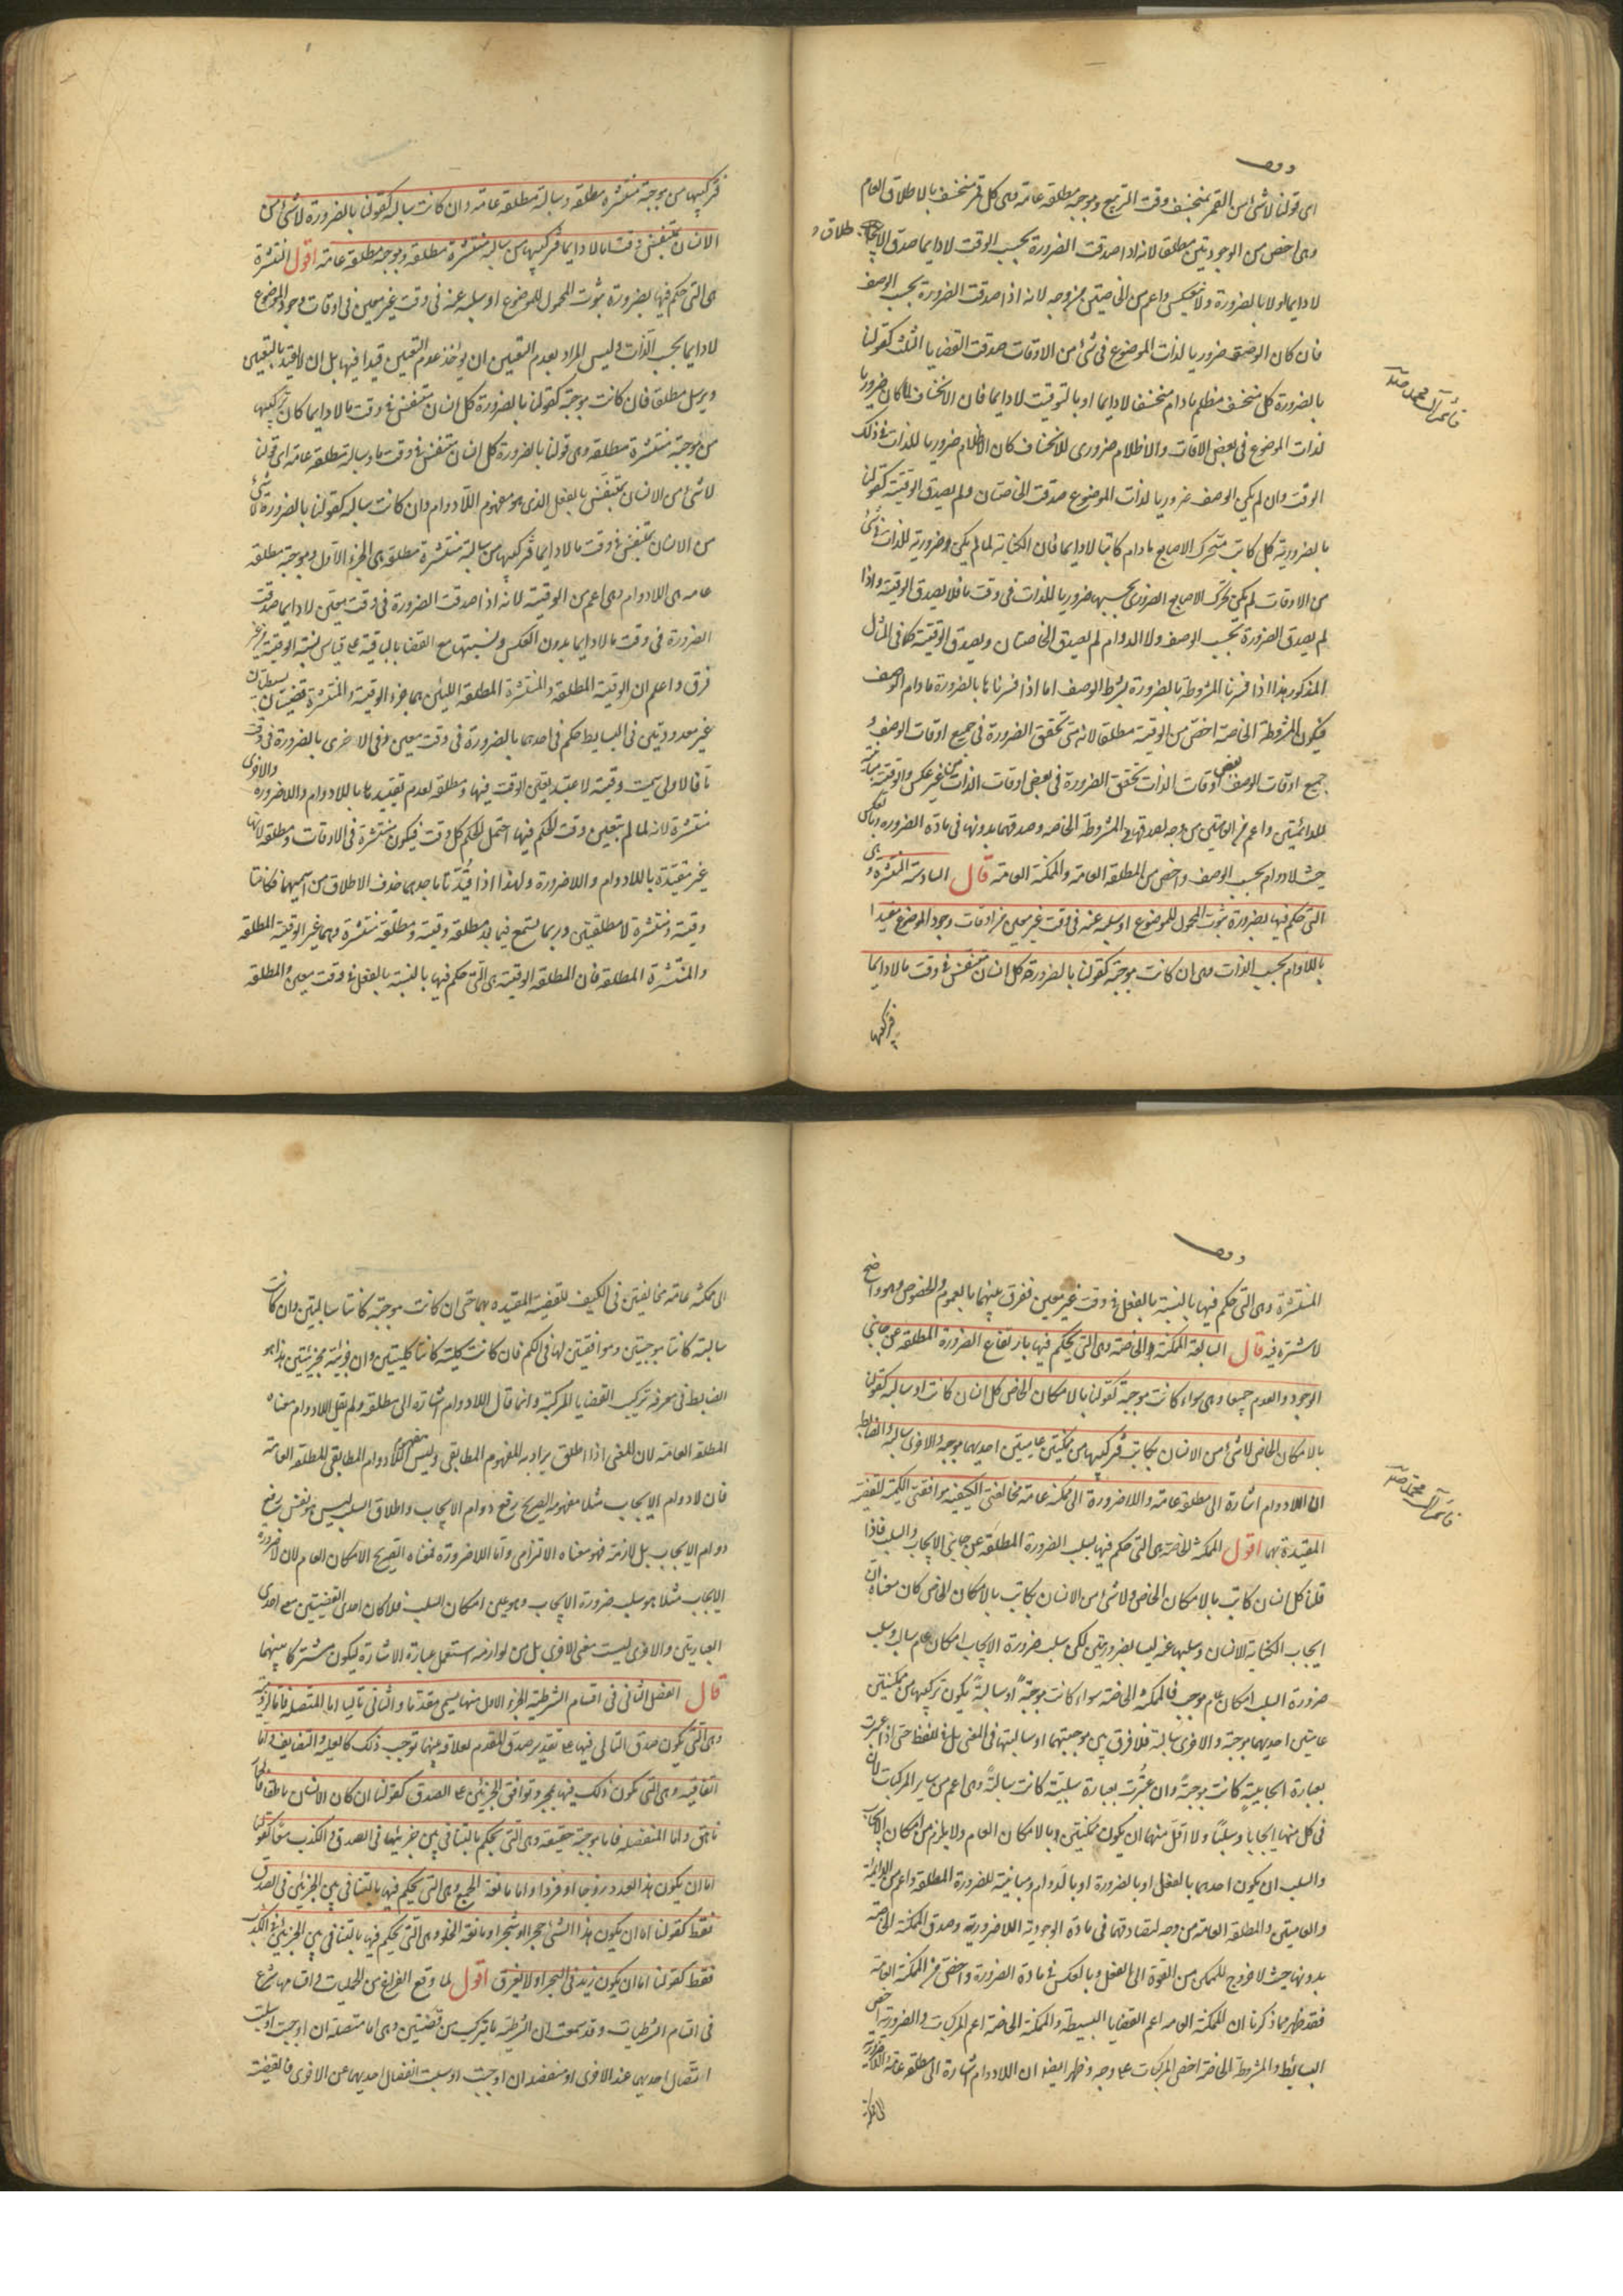 وقف
اى قولنا لا شئ من القمر بمنخسف وقت التربيع وموجبه مطلقه عامه وهى كل قمر منخسف بالاطلاق العام
وهى اخص من الوجوديتين مطلقا لانه اذا صدقت الضرورة بحسب الوقت لا دايما صدق الاطلاق
لا دايما ولا بالضرورة ولا ينعكس واعم من الخاصتين من وجه لانه اذا صدقت الضرورة بحسب الوصف
فان كان الوصف ضروريا لذات الموضوع فى شئ من الاوقات صدقت القضايا الثلث كقولنا
بالضرورة كل منخسف مظلم ما دام منخسفا لا دايما او بالتوقيت لا دايما فان الانخساف لما كان ضروريا
لذات الموضوع فى بعض الاوقات والاظلام ضرورى للانخساف كان الاظلام ضروريا للذات فى ذلك
الوقت وان لم يكن الوصف ضروريا لذات الموضوع صدقت الخاصتان ولم يصدق الوقتيه كقولنا
بالضرورية كل كاتب متحرك الاصابع ما دام كاتبا لا دايما فان الكتابة لما لم يكن ضرورية للذات فى شئ
من الاوقات لم يكن تحرك الاصابع الضرورى بحسبها ضروريا للذات فى وقت ما فلا يصدق الوقتية واذا
لم يصدق الضرورة بحسب الوصف ولا الدوام لم يصدق الخاصتان ويصدق الوقتية كما فى المثال
المذكور هذا اذا فسرنا المشروطة بالضرورة بشرط الوصف اما اذا فسرناها بالضرورة مادام الوصف
فيكون المشروطة الخاصة اخص من الوقتية مطلقا لانه متى تحقق الضرورة فى جميع اوقات الوصف و
جميع اوقات الوصف بعض اوقات الذات تحقق الضرورة فى بعض اوقات الذات من غير عكس والوقتية مباينة
للدائمتين واعم من العامتين من وجه لصدقها فى المشروطة الخاصه وصدقهما بدونها فى مادة الضرورة وبالعكس
حيث لا دوام بحسب الوصف واخص من المطلقه العامة والممكنة العامة قال السادسة المنتشرة وهى
التى حكم فيها بضرورة ثبوت المحمول للموضوع او سلبه عنه فى وقت غير معين من اوقات وجود الموضوع مقيدا
باللادوام بحسب الذات وهى ان كانت موجبة كقولنا بالضرورة كل انسان متنفس فى وقت ما لا دايما
فتركيبها
فتركيبها من موجبة منتشره مطلقه وسالبة مطلقه عامه وان كانت سالبه كقولنا بالضرورة لا شئ من
الانسان بمتنفس وقتا ما لا دايما فتركيبها من سالبه منتشرة مطلقة وموجبه مطلقه عامه اقول المنتشرة
هى التى حكم فيها بضرورة ثبوت المحمول للموضوع او سلبه عنه فى وقت غير معين فى اوقات وجود الموضوع
لا دايما بحسب الذات وليس المراد بعدم التعيين ان يؤخذ عدم التعيين قيدا فيها بل ان لا يقيد بالتعيين
ويرسل مطلقا فان كانت موجبة كقولنا بالضرورة كل انسان متنفس فى وقت ما لا دايما كان تركيبها
من موجبة منتشرة مطلقه وهى قولنا بالضرورة كل انسان متنفس فى وقت ما وسالبة مطلقه عامه اى قولنا
لا شئ من الانسان بمتنفس بالفعل الذى هو مفهوم اللادوام وان كانت سالبه كقولنا بالضرورة لا شئ
من الانسان بمتنفس فى وقت ما لا دايما فتركيبها من سالبة منتشرة مطلقة هى الجزء الاول وموجبة مطلقه
عامه هى اللادوام وهى اعم من الوقتية لانه اذا صدقت الضرورة فى وقت معين لا دايما صدقت
الضرورة فى وقت ما لا دايما بدون العكس ونسبتها مع القضايا الباقية على قياس نسبة الوقتية من غير
فرق واعلم ان الوقتية المطلقة والمنتشرة المطلقة اللتين هما جزء الوقتية والمنتشرة قضيتان بسيطتان
غير معدودتين فى البسايط حكم فى احديهما بالضرورة فى وقت معين وفى الاخرى بالضرورة فى وقت
ما فالاولى سميت وقتية لاعتبد تعيين الوقت فيها ومطلقه لعدم تقييدها باللادوام واللاضرورة والاخرى
منتشرة لانه لما لم يتعين وقت الحكم فيها احتمل الحكم كل وقت فيكون منتشرة فى الاوقات ومطلقه لانها
غير مقيدة باللادوام واللاضرورة ولهذا اذا قيدتا باحديهما حذف الاطلاق من اسميهما فكانتا
وقتية ومنتشرة لا مطلقتين وربما تسمع فيما بعد مطلقه وقتية ومطلقه منتشرة وهما غير الوقتية المطلقه
والمنتشرة المطلقه فان المطلقه الوقتية هى التى حكم فيها بالنسبة بالفعل فى وقت معين والمطلقه
وقف
المنتشرة وهى التى حكم فيها بالنسبة بالفعل فى وقت غير معين ففرق بينهما بالعموم والخصوص وهو واضح
لا سترة فيه قال السابعة الممكنة الخاصة وهى التى يحكم فيها بارتفاع الضرورة المطلقه عن جانبى
الوجود والعدم جميعا وهى سواء كانت موجبة كقولنا بالامكان الخاص كل انسان كاتب او سالبه كقولنا
بالامكان الخاص لا شئ من الانسان بكاتب فتركيبها من ممكنتين عامتين احديهما موجبه والاخرى سالبه والضابطه
ان اللادوام اشارة الى مطلقة عامه واللاضرورة الى ممكنة عامه مخالفتى الكيفيه موافقتى الكمية للقضيه
المقيدة بهما اقول الممكنة الخاصة هى التى حكم فيها بسلب الضرورة المطلقة عن جانبى الايجاب والسلب فاذا
قلنا كل انسان كاتب بالامكان الخاص ولا شئ من الانسان بكاتب بالامكان الخاص كان معناه ان
ايجاب الكتابة للانسان وسلبها عنه ليسا بضروريتين لكن سلب ضرورة الايجاب امكان عام سالب وسلب
ضرورة السلب امكان عام موجب فالممكنة الخاصة سواء كانت موجبة او سالبة يكون تركيبها من ممكنتين
عامتين احديهما موجبة والاخرى سالبة فلا فرق بين موجبتها او سالبتها فى المعنى بل فى اللفظ حتى اذا عبرت
بعبارة ايجابية كانت موجبة وان عبرت بعبارة سلبية كانت سالبة وهى اعم من ساير المركبات لان
فى كل منها ايجابا وسلبا ولا اقل منهما ان يكون ممكنتين بالامكان العام ولا يلزم من امكان الايجاب
والسلب ان يكون احدهما بالفعل او بالضرورة او بالدوام ومباينة للضرورة المطلقه واعم من الدائمة
والعامتين والمطلقة العامة من وجه لتصادقهما فى مادة الوجودية اللاضرورية وصدق الممكنة الخاصة
بدونها حيث لا خروج للممكن من القوة الى الفعل وبالعكس فى مادة الضرورة واخص من الممكنة العامة
فقد ظهر مما ذكرنا ان الممكنة العامه اعم القضايا البسيطة والممكنة الخاصة اعم المركبات والضرورية اخص
البسائط والمشروطة الخاصة اخص المركبات على وجه وظهر ايضا ان اللادوام اشارة الى مطلقة عامة واللاضرورة
الى ممكنة عامة مخالفتين فى الكيف للقضية المقيده بهما حتى ان كانت موجبة كانتا سالبتين وان كانت
سالبة كانتا موجبتين وموافقتين لها فى الكم فان كانت كلية كانتا كليتين وان جزئية فجزئيتين هذا هو
الضابط فى معرفة تركيب القضايا المركبة وانما قال اللادوام اشارة الى مطلقة ولم يقل اللادوام معناه
المطلقة العامة لان المعنى اذا اطلق يراد به المفهوم المطابقى وليس مفهوم اللادوام المطابقى المطلقه العامة
فان لا دوام الايجاب مثلا مفهومه الصريح رفع دوام الايجاب واطلاق السلب ليس هو نفس رفع
دوام الايجاب بل لازمه فهو معناه الالتزامى واما اللاضرورة فمعناه الصريح الامكان العام لان لا ضرورة
الايجاب مثلا هو سلب ضرورة الايجاب وهو عين امكان السلب فلما كان احدى القضيتين معنى احدى
العبارتين والاخرى ليست معنى الاخرى بل من لوازمه استعمل عبارة الاشارة ليكون مشتركا بينهما
قال الفصل الثانى فى اقسام الشرطية الجزء الاول منها يسمى مقدما والثانى تاليا اما المتصلة فاما لزومية
وهى التى يكون صدق التالى فيها على تقدير صدق المقدم لعلاقه بينهما توجب ذلك كالعلية والتضايف واما
اتفاقيه وهى التى يكون ذلك فيها بمجرد توافق الجزئين على الصدق كقولنا ان كان الانسان ناطقا فالحمار
ناهق واما المنفصله فاما موجبة حقيقية وهى التى يحكم بالتنافى بين جزئيها فى الصدق والكذب معا كقولنا
اما ان يكون هذا العدد زوجا او فردا واما مانعة الجمع وهى التى يحكم فيها بالتنافى بين الجزئين فى الصدق
فقط كقولنا اما ان يكون هذا الشئ حجرا او شجرا او مانعة الخلو وهى التى يحكم فيها بالتنافى بين الجزئين فى الكذب
فقط كقولنا اما ان يكون زيد فى البحر او لا يغرق اقول لما وقع الفراغ من الحمليات واقسامها شرع
فى اقسام الشرطيات وقد سمعت ان الشرطية ما يتركب من قضيتين وهى اما متصلة ان اوجبت او سلبت
اتصال احديهما عند الاخرى او منفصله ان اوجبت او سلبت انفصال احديهما عن الاخرى فالقضية